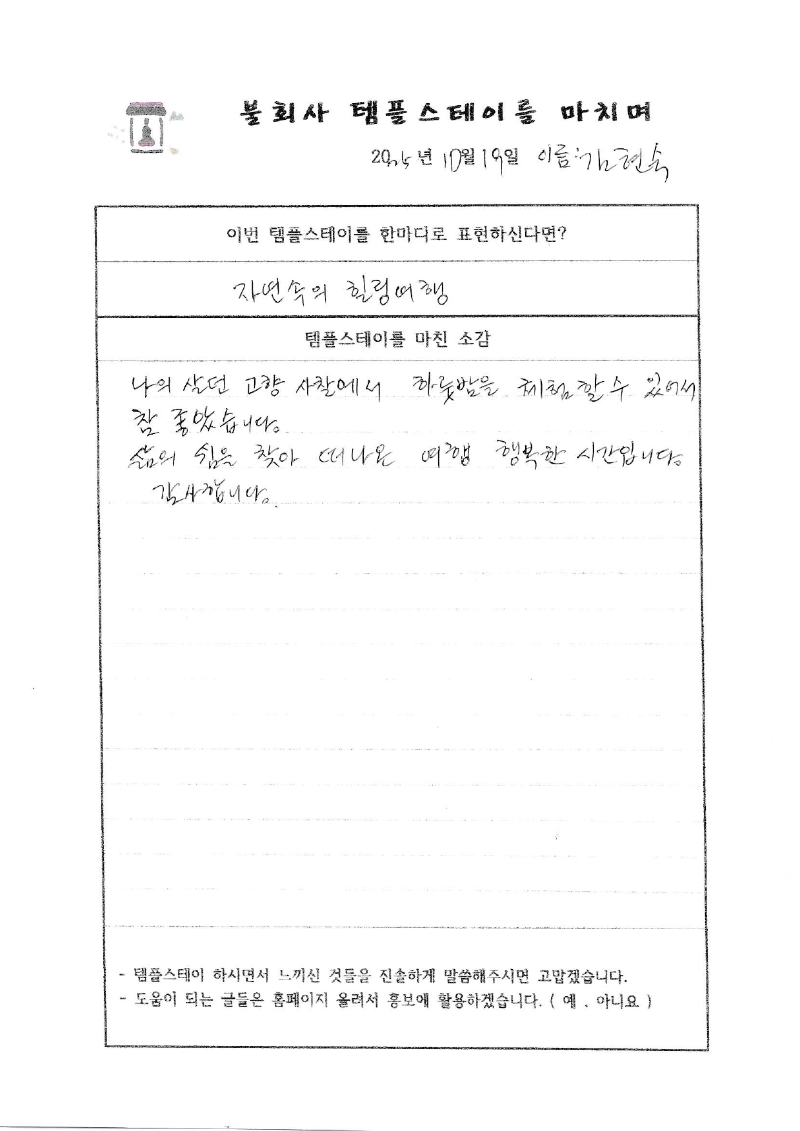 불회사 템플스테이를 마치며
2025년 10월 19일 이름: 김현숙
이번 템플스테이를 한마디로 표현하신다면?
자연속의 힐링여행
템플스테이를 마친 소감
나의 살던 고향 사찰에서 하룻밤을 체험할수 있어서
참 좋았습니다.
삶의 쉼을 찾아 떠나온 여행 행복한 시간입니다.
감사합니다.
- 템플스테이 하시면서 느끼신 것들을 진솔하게 말씀해주시면 고맙겠습니다.
- 도움이 되는 글들은 홈페이지 올려서 홍보에 활용하겠습니다. ( 예 . 아니요 )